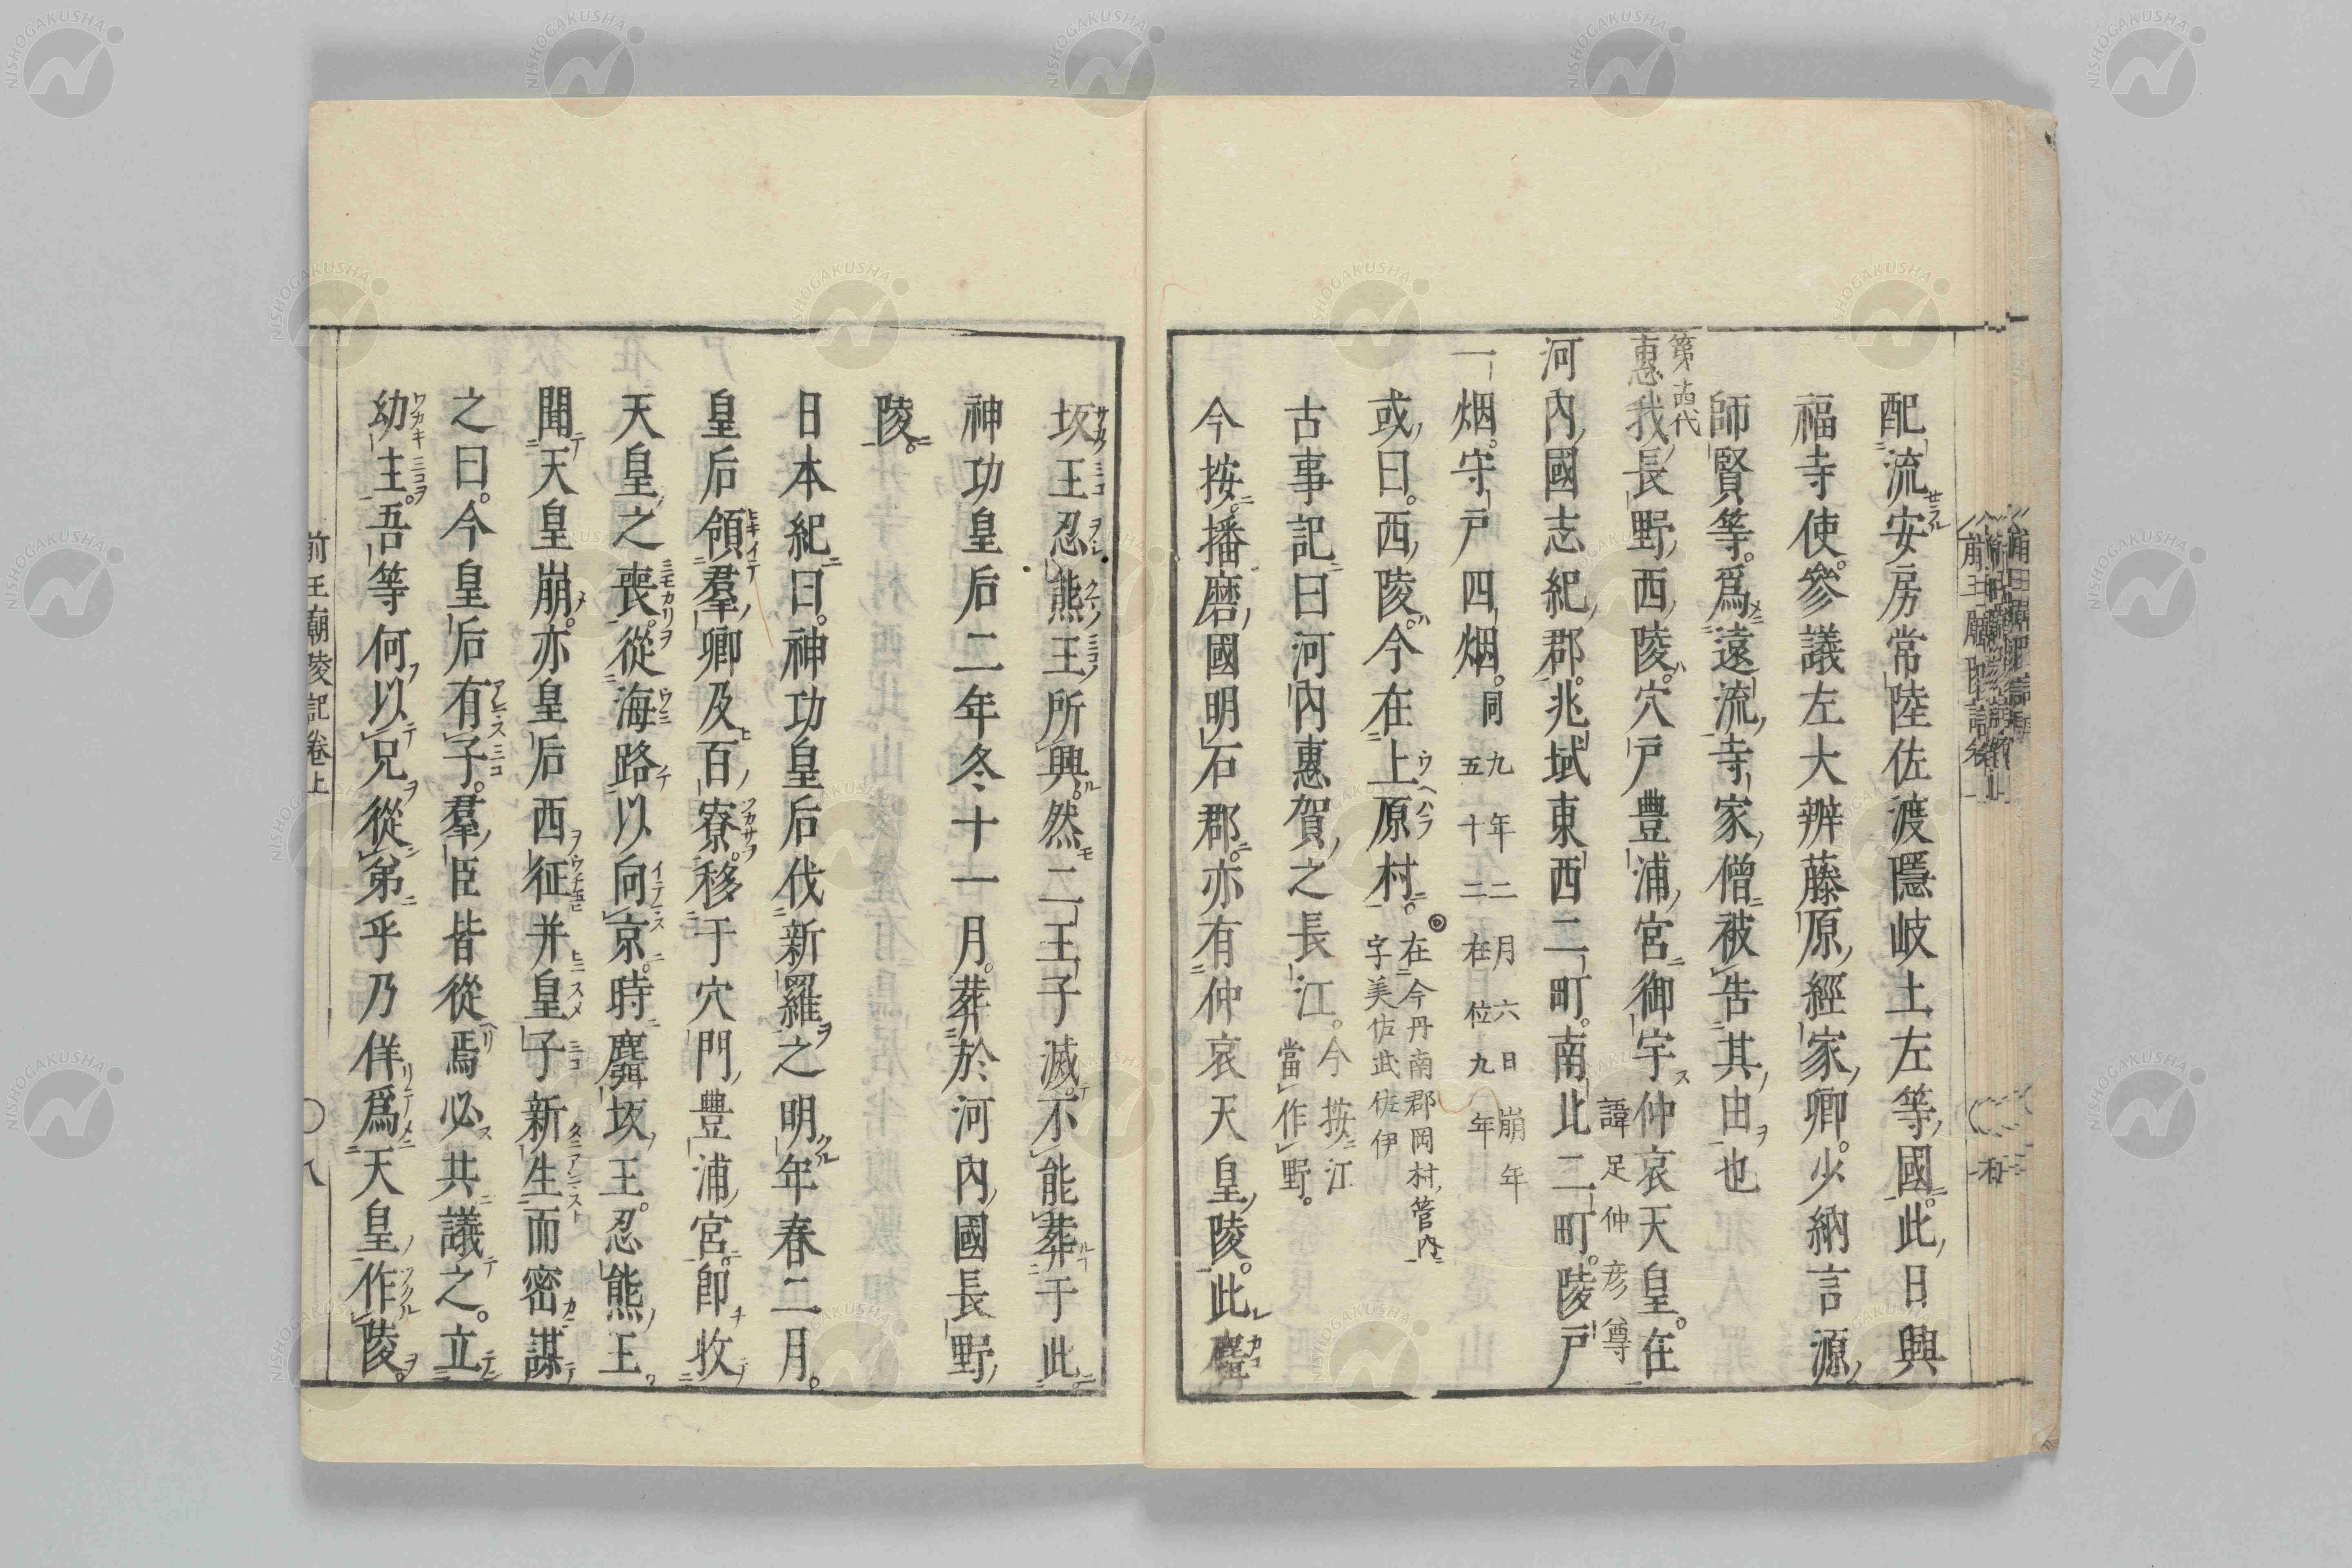 配流安房常陸佐渡隱岐土左等國此日興
福寺使參議左大辨藤原經家卿少納言源
師賢等爲遠流寺家僧被告其由也
第十四代
惠我長野西陵穴戸豊浦宮御宇仲哀天皇在
諱足仲彦尊
河內國志紀郡兆域東西二町南北二町陵戸
一烟守戸四烟同
九年二月六日崩年
五十二在位九年
或曰西陵今在上原村
在今丹南郡岡村管内
字美佐武佐伊
古事記曰河內惠賀之長江
今按江
當作野
今按播磨國明石郡亦有仲哀天皇陵此麛
坂王忍熊王所興然二王子滅不能葬于此
神功皇后二年冬十一月葬於河內國長野
陵
日本紀曰神功皇后伐新羅之明年春二月
皇后領羣卿及百寮移于穴門豊浦宮卽收
天皇之喪從海路以向京時麛坂王忍熊王
聞天皇崩亦皇后西征并皇子新生而密謀
之曰今皇后有子羣臣皆從焉必共議之立
幼主吾等何以兄從弟乎乃佯爲天皇作陵
前王廟陵記卷上
八